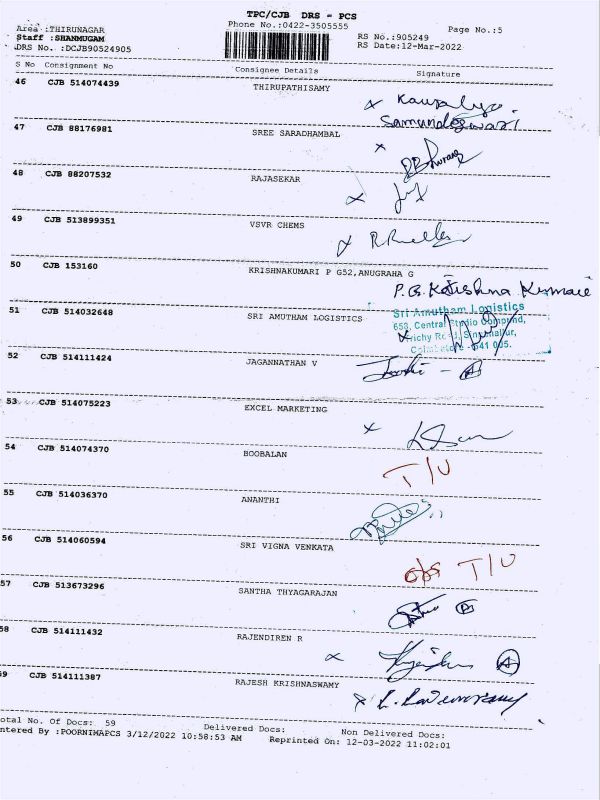 TPC/CJB DRS - PCS
Phone No.:0422-3505555
Page No.:5
Area :THIRUNAGAR
Staff :SHANMUGAM
DRS No. :DCJB90524905
RS No.:905249
RS Date:12-Mar-2022
S No Consignment No Consignee Details Signature
46 CJB 514074439 THIRUPATHISAMY
x Kausalya
Samundeswari
47 CJB 88176981 SREE SARADHAMBAL x
48 CJB 88207532 RAJASEKAR x
49 CJB 513899351 VSVR CHEMS x
50 CJB 153160 KRISHNAKUMARI P G52,ANUGRAHA G
P.G.
51 CJB 514032648 SRI AMUTHAM LOGISTICS
Sri Amutham Logistics
653, Central Studio Compound,
Trichy Road, Singanallur,
Coimbatore - 641 005.
52 CJB 514111424 JAGANNATHAN V
53 CJB 514075223 EXCEL MARKETING x
54 CJB 514074370 BOOBALAN T/U
55 CJB 514036370 ANANTHI
56 CJB 514060594 SRI VIGNA VENKATA T/U
57 CJB 513673296 SANTHA THYAGARAJAN
58 CJB 514111432 RAJENDIREN R x
59 CJB 514111387 RAJESH KRISHNASWAMY x
otal No. Of Docs: 59 Delivered Docs: Non Delivered Docs:
ntered By :POORNIMAPCS 3/12/2022 10:58:53 AM Reprinted On: 12-03-2022 11:02:01